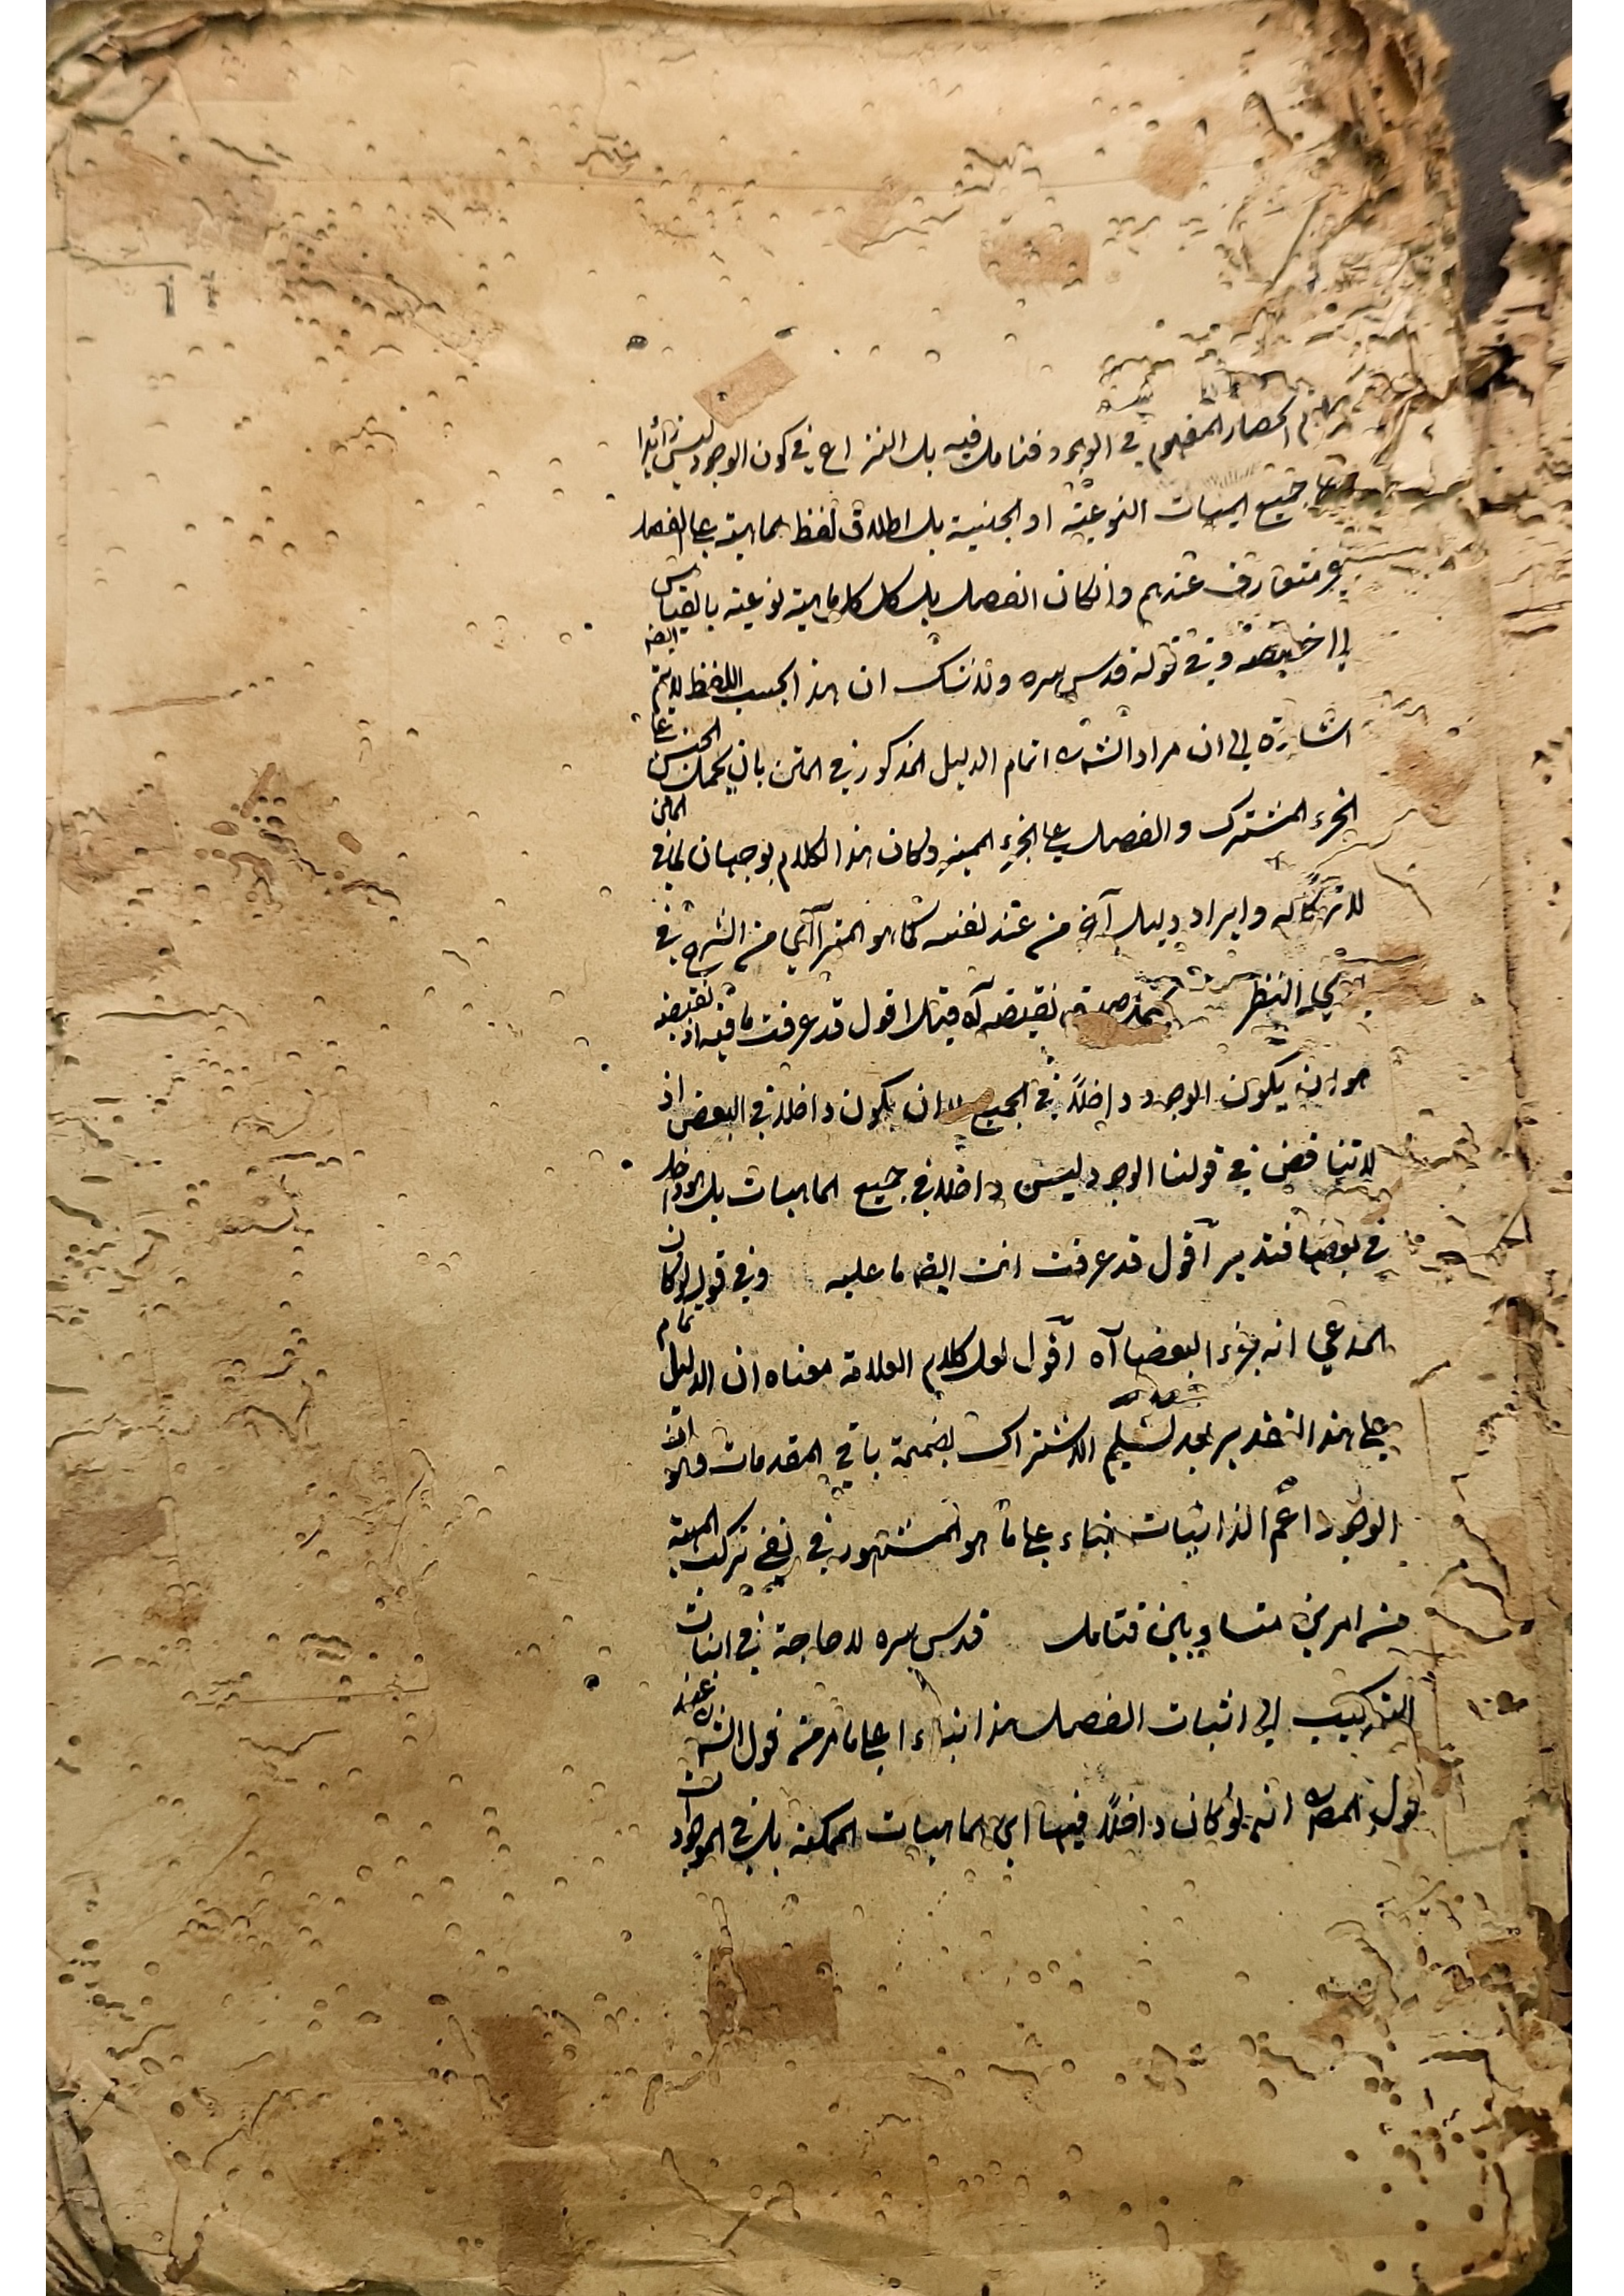 انحصار المفهوم في الوجود فتامل فيه بل النزاع في كون الوجود ليس زائدا
على جميع المهيات النوعية او الجنسية بل اطلاق لفظ الماهية على الفصل
غير متعارف عندهم وان كان الفصل بل كل كلي ماهية نوعية بالقياس
الى حصصه وفي قوله قدس سره ولا شك ان هذا بحسب اللفظ لا يتم ايضه
اشارة الى ان مراد الشه اتمام الدليل المذكور في المتن بان يحمل الجنس على
الجزء المشترك والفصل على الجزء المميز ولكان هذا الكلام يوجب ان لما في المتن
لا تركا له وايراد دليل آخر من عند نفسه كما هو المترآاي من الشرح في
النظر نقيضه آه قيل اقول قد عرفت ما فيه اذ نقيضه
هو ان يكون الوجود داخلاً في الجميع لا ان يكون داخلا في البعض اذ
لا تناقض في قولنا الوجود ليس داخلا في جميع الماهيات بل هو داخل
في بعضها فتدبر اقول قد عرفت انت ايضه ما عليه وفي قوله لو كان
المدعي انه جزء البعضها آه اقول لعل كلام العلامة معناه ان الدليل تمام
على هذا التقدير بعد تسليم الاشتراك بضميمة باقي المقدمات
الوجود اعم الذاتيات بناء على ما هو المشهور في نفي تركب المهية
من امرين متساويين فتامل قدس سره لا حاجة في اثبات
التركيب الى اثبات الفصل هذا بناء على ما مر من قول الشه
قول المصه انه لو كان داخلاً فيها اي الماهيات الممكنة بل في الموجودات